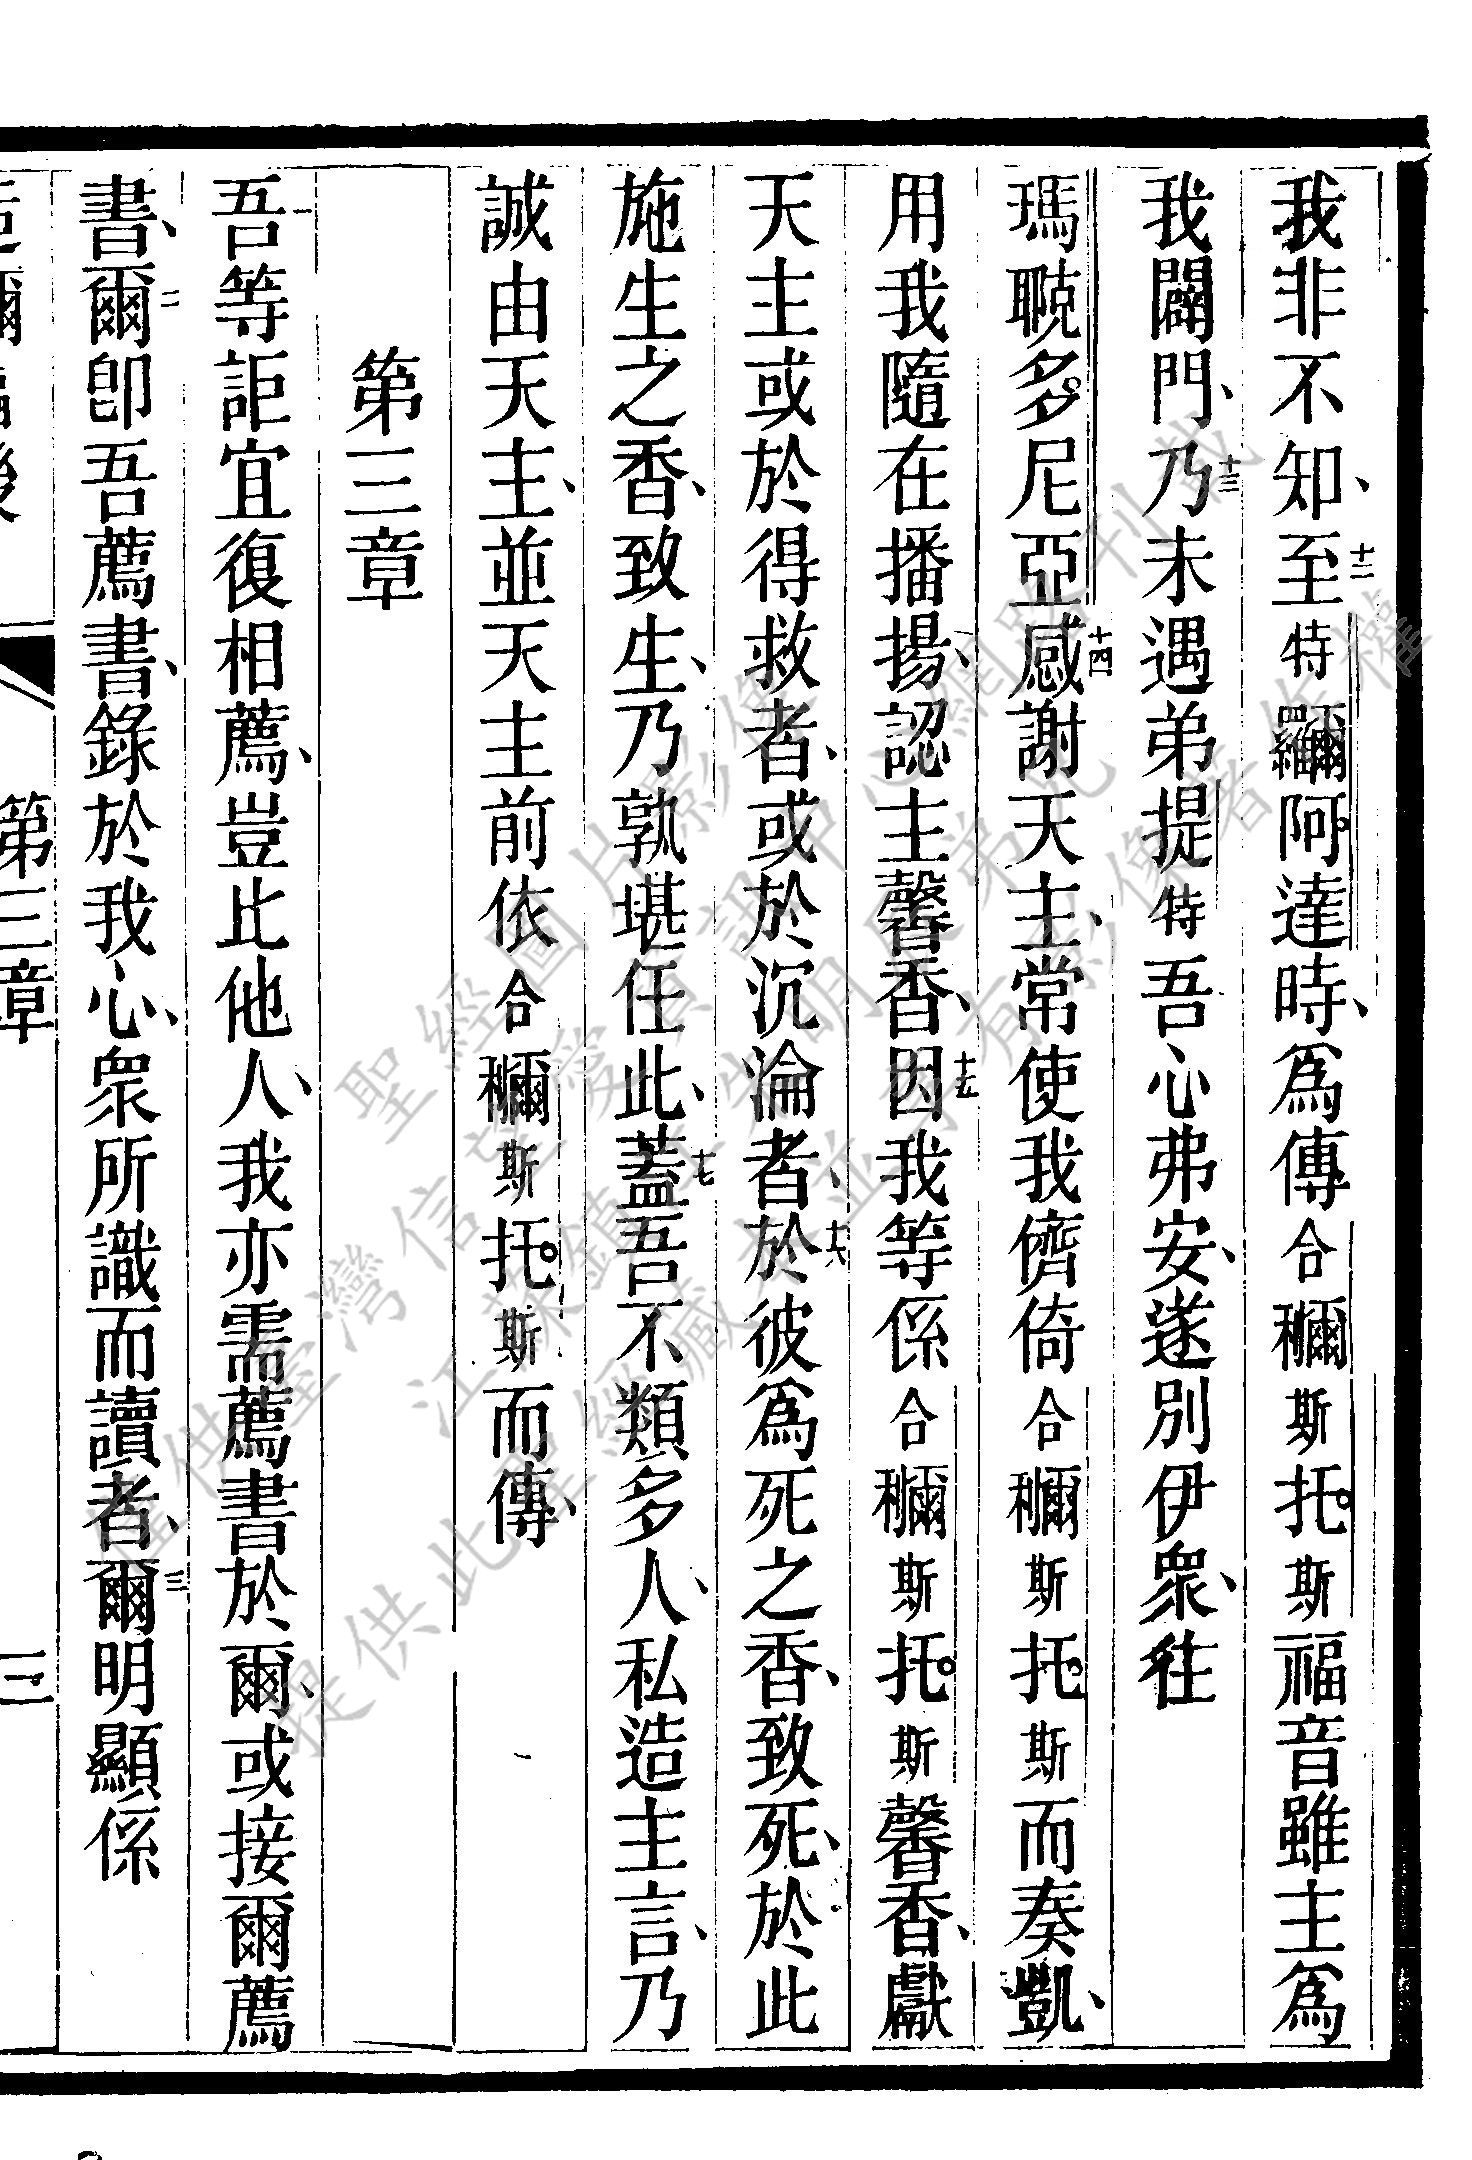 我非不知、至十二特阿達時、爲傳合穪斯托斯福音雖主爲
我闢門、乃十三未遇弟提特吾心弗安、遂別伊衆、往
瑪多尼亞感十四謝天主、常使我儕倚合穪斯托斯而奏凱、
用我隨在播揚、認主馨香、因十五我等係合穪斯托斯馨香、獻
天主或於得救者、或於沉淪者、於十六彼爲死之香、致死、於此
施生之香、致生、乃孰堪任此、蓋十七吾不類多人、私造主言、乃
誠由天主、並天主前依合穪斯托斯而傳、
第三章
吾一等詎宜復相薦、豈比他人、我亦需薦書於爾、或接爾薦
書、爾二卽吾薦書、錄於我心、衆所識而讀者、爾三明顯係
第三章 三
聖經圖片影像
僅供臺灣信望愛資訊中心網路刊載
提供此聖經藏本並享有影像著作權